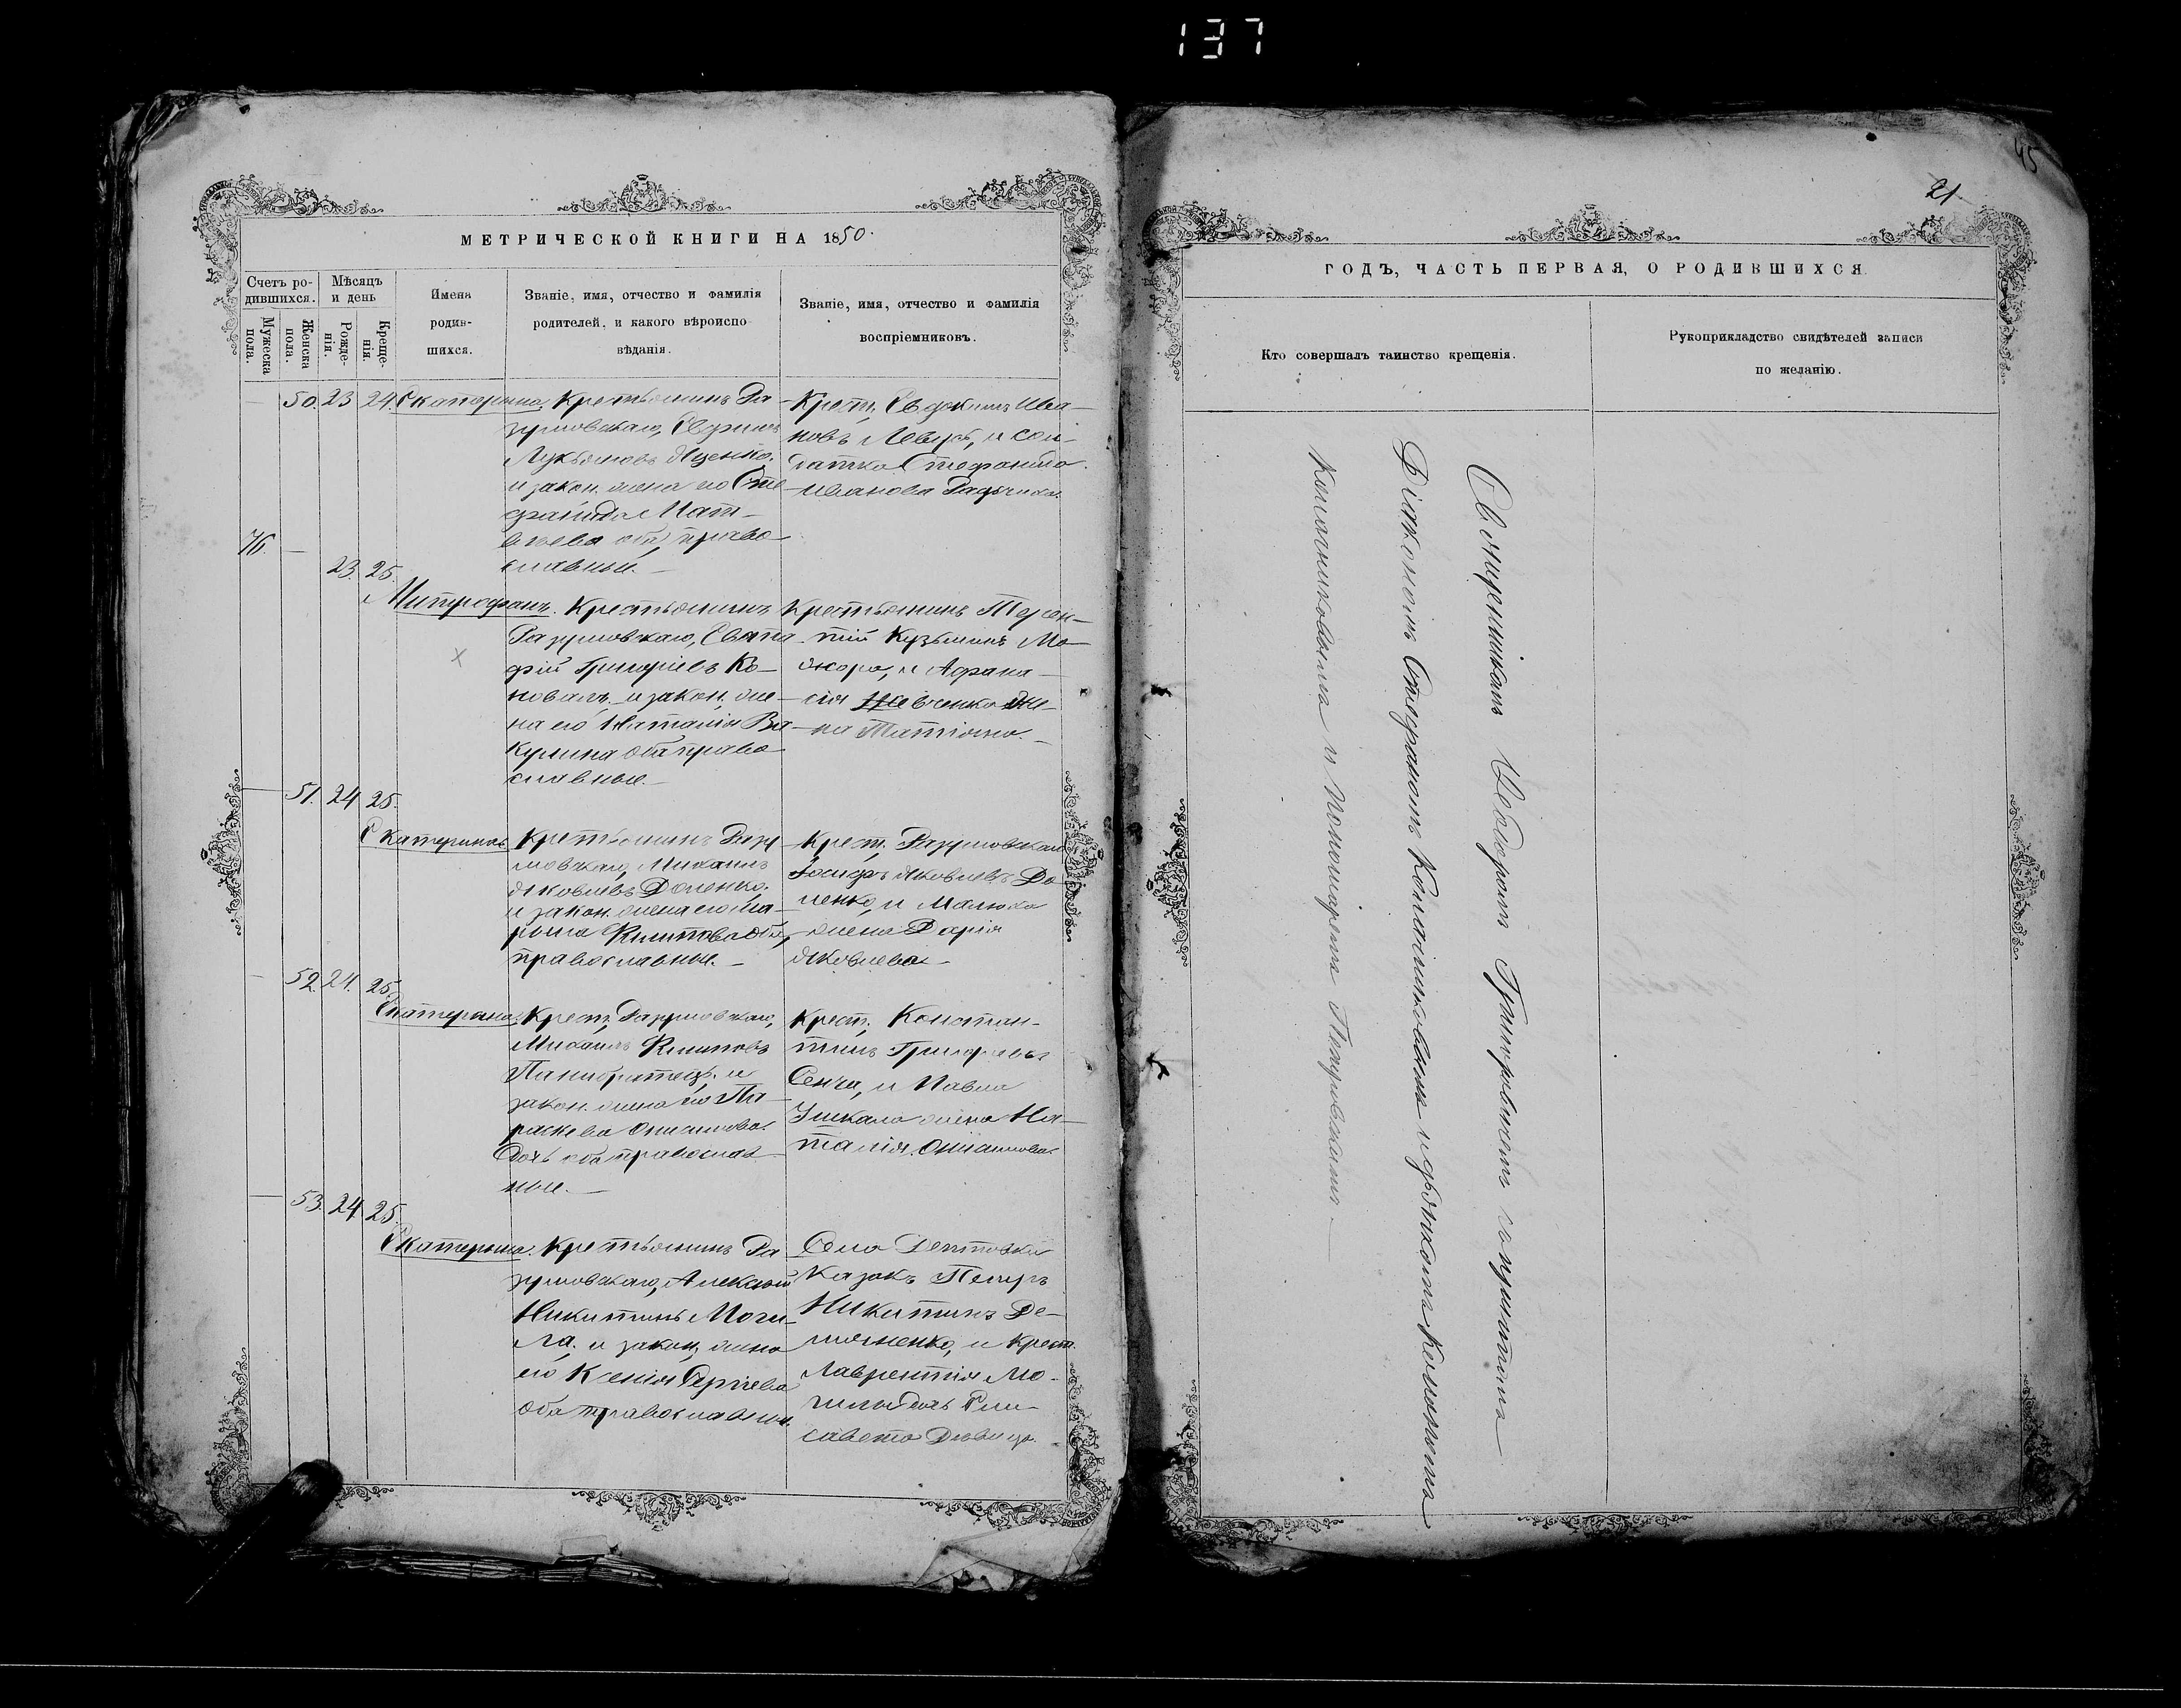 137
МЕТРИЧЕСКОЙ КНИГИ НА 1850.
Счетъ ро-
дившихся.
Мужеска пола.
Женска пола.
Мѣсяцъ
и день
Рожде-
нія.
Креще-
нія.
Имена
родив-
шихся.
Званіе, имя, отчество и фамилія
родителей, и какого вѣроиспо
вѣданія.
Званіе, имя, отчество и фамилія
воспріемниковъ.
50. 23 24. Екатерина. Крестьянинъ Ра-
зумовскаго,
Лукьяновъ Яценко.
и закон. жена его Сте-
фанида Мат-
вѣева оба право
славные.
Крест. Евдокимъ Ива-
новъ и сол-
датка Стефанида
Иванова
46. 23. 25.
Митрофанъ. Крестьянинъ
Разумовскаго, Евста
фій Григоріевъ Ко-
новалъ, и закон. же-
на его Наталія Ва-
кулина оба право
славные.
Крестьянинъ Терен-
тій Кузьминъ Мо-
жара, и Афана-
сія Шевченка Же-
на Татіана.
51. 24 25.
Екатерина Крестьянинъ Разу
мовскаго, Михаилъ
Яковлевъ Доценко.
и закон. жена его Ма-
рина Филипова оба
православные.
Крест. Разумовскаго
Іосифъ Яковлевъ До
ценко, и
жена Дарія
Яковлева
52. 24. 25.
Екатерина. Крест. Разумовскаго,
Михаилъ Филиповъ
Панибратецъ. и
закон. жена его Па-
раскева Онисимова
дочь оба православ
ные.
Крест. Констан-
тинъ Григорьевъ
Сенча, и Павла
Ушкала жена На-
талія. Онисимова
53. 24 25.
Екатерина. Крестьянинъ Ра
зумовскаго, Алексѣй
Никитинъ Моги-
ла. и закон. жена
его Ксенія Сергіева
оба православные.
Села Дептовки
Казакъ Петръ
Никитинъ Де-
мяненко, и Крест.
Лаврентія Мо-
гилы дочь Ели-
савета Дѣвица.
45
21
ГОДЪ, ЧАСТЬ ПЕРВАЯ, О РОДИВШИХСЯ
Кто совершалъ таинство крещенія.
Рукоприкладство свидѣтелей записи
по желанію.
Священникомъ Ѳеодоромъ Григоровичемъ съ причтомъ
Діакономъ Стефаномъ Колачниковымъ и дьячкомъ
Колачниковымъ и Пономаремъ Петровскимъ